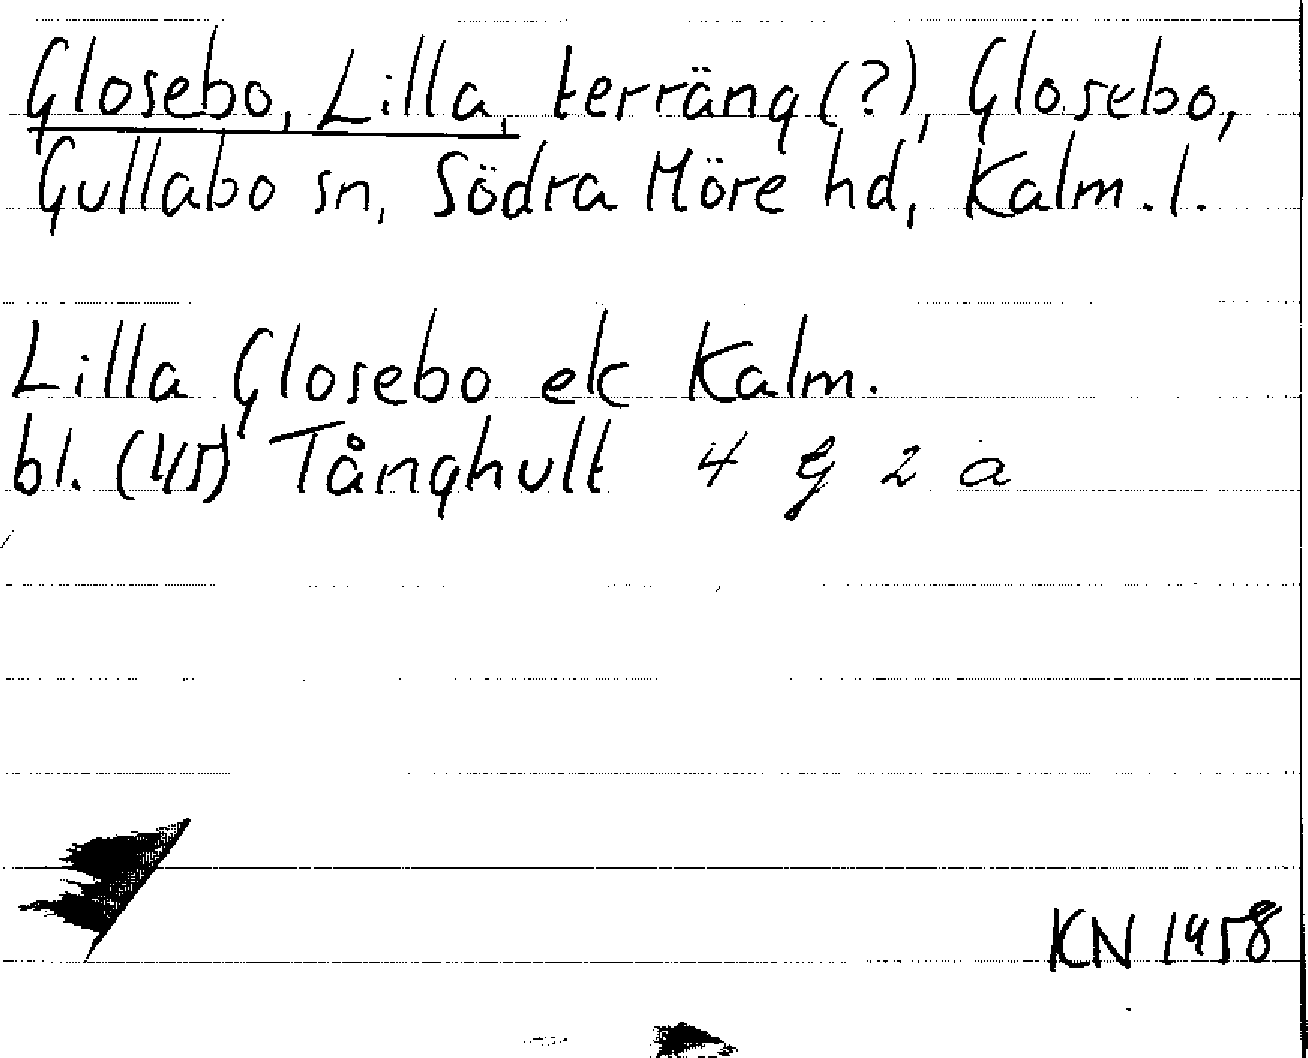 Glosebo, Lilla, terräng (?), Glosebo,
Gullabo sn, Södra Möre hd, Kalm. l.
Lilla Glosebo ek Kalm.
bl. (45) Tånghult 4 g 2 a
KN 1958